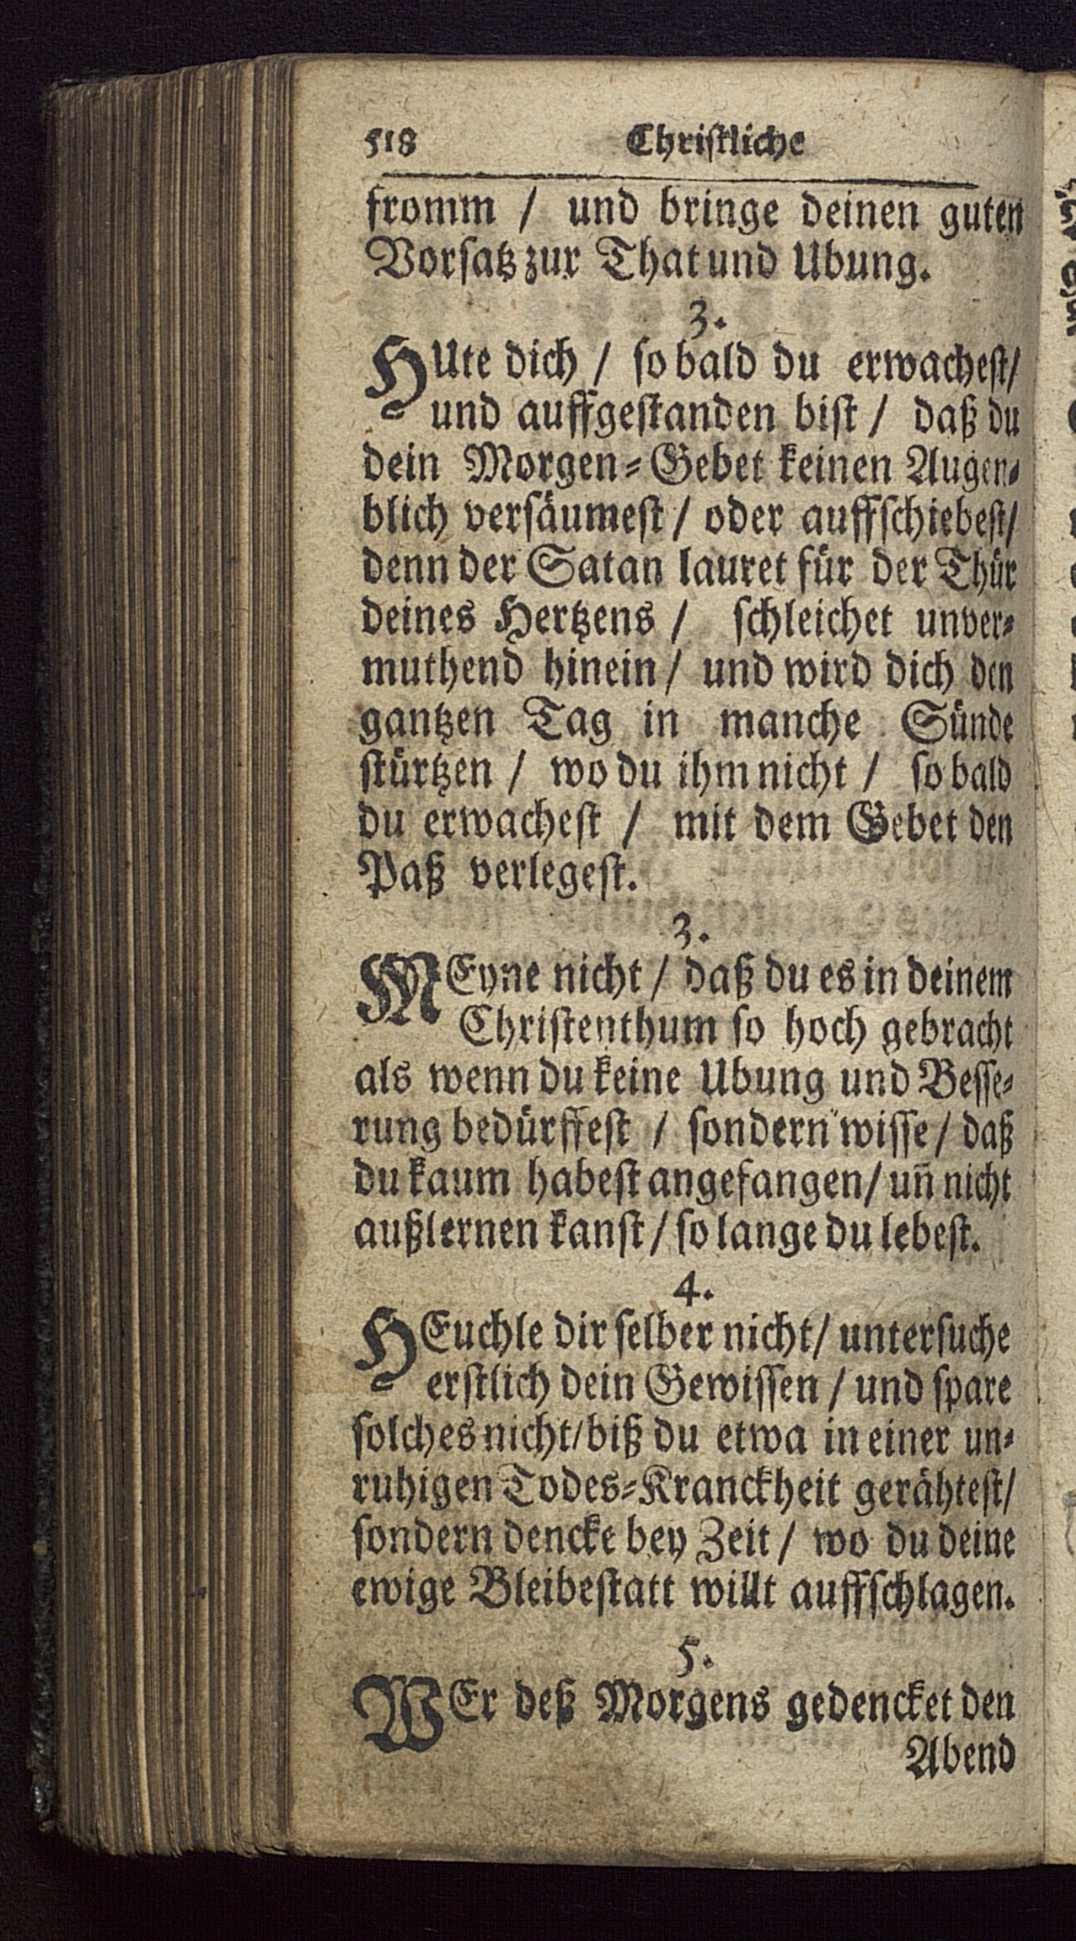 518 Christliche
fromm / und bringe deinen guten
Vorsatz zur That und Ubung.
3.
HUte dich / so bald du erwachest/
und auffgestanden bist / daß du
dein Morgen-Gebet keinen Augen-
blich versäumest / oder auffschiebest/
denn der Satan lauret für der Thür
deines Hertzens / schleichet unver-
muthend hinein / und wird dich den
gantzen Tag in manche Sünde
stürtzen / wo du ihm nicht / so bald
du erwachest / mit dem Gebet den
Paß verlegest.
3.
MEyne nicht / daß du es in deinem
Christenthum so hoch gebracht
als wenn du keine Ubung und Besse-
rung bedürffest / sondern wisse / daß
du kaum habest angefangen / uñ nicht
außlernen kanst / so lange du lebest.
4.
HEuchle dir selber nicht / untersuche
erstlich dein Gewissen / und spare
solches nicht / biß du etwa in einer un-
ruhigen Todes-Kranckheit gerähtest/
sondern dencke bey Zeit / wo du deine
ewige Bleibestatt willt auffschlagen.
5.
WEr deß Morgens gedencket den
Abend